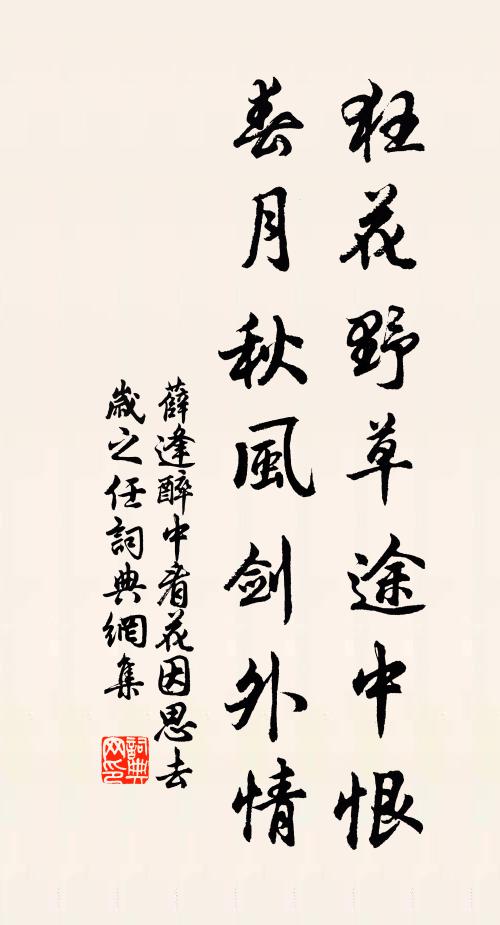 狂花野草途中恨
春月秋風劍外情
薛逢醉中看花因思去
歲之任詞典網集
詞典
网印